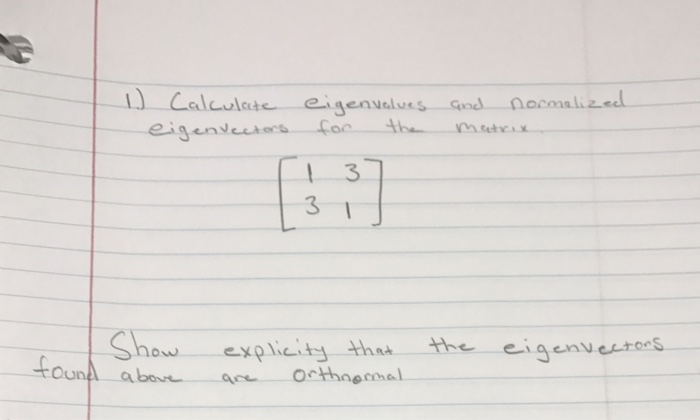 1.) Calculate eigenvalues and normalized
eigenvectors for the matrix
1 3
3 1
Show explicity that the eigenvectors
found above are orthnormal